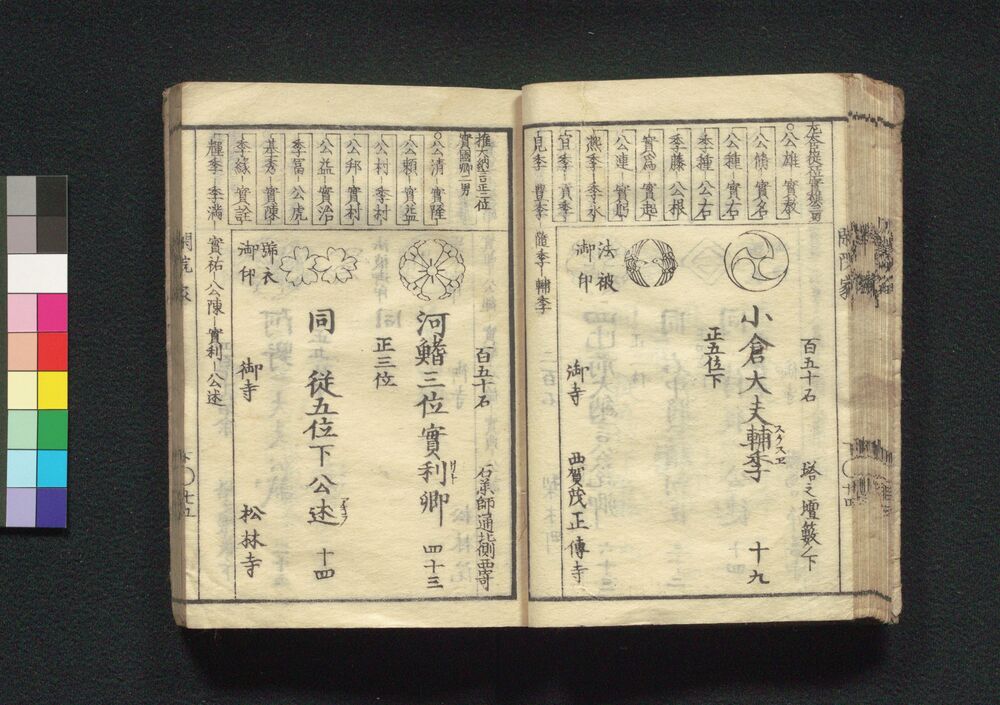 ○公雄 實教
公脩 實名
公種 實右
季種 公右
季藤 公根
實爲 實起
公連 實躬
凞季 季永
宜季 貢季
見季 豊季
隨季 輔季
百五十石
塔之壇籔ノ下
小倉大夫輔季
スケスヱ
十九
正五位下
法被
御印
御寺
西賀茂正傳寺
權大納言正二位
實國卿二男
○公清 實隆
公頼 實益
公村 季村
公邦 實村
公益 實治
季冨 公虎
基秀 實陳
季縁 實詮
輝季 季満
實祐 公陳 實利 公述
百五十石
石薬師通北側西寄
河鰭三位實利卿
四十三
正三位
同 従五位下公述
十四
號衣
御印
御寺
松林寺